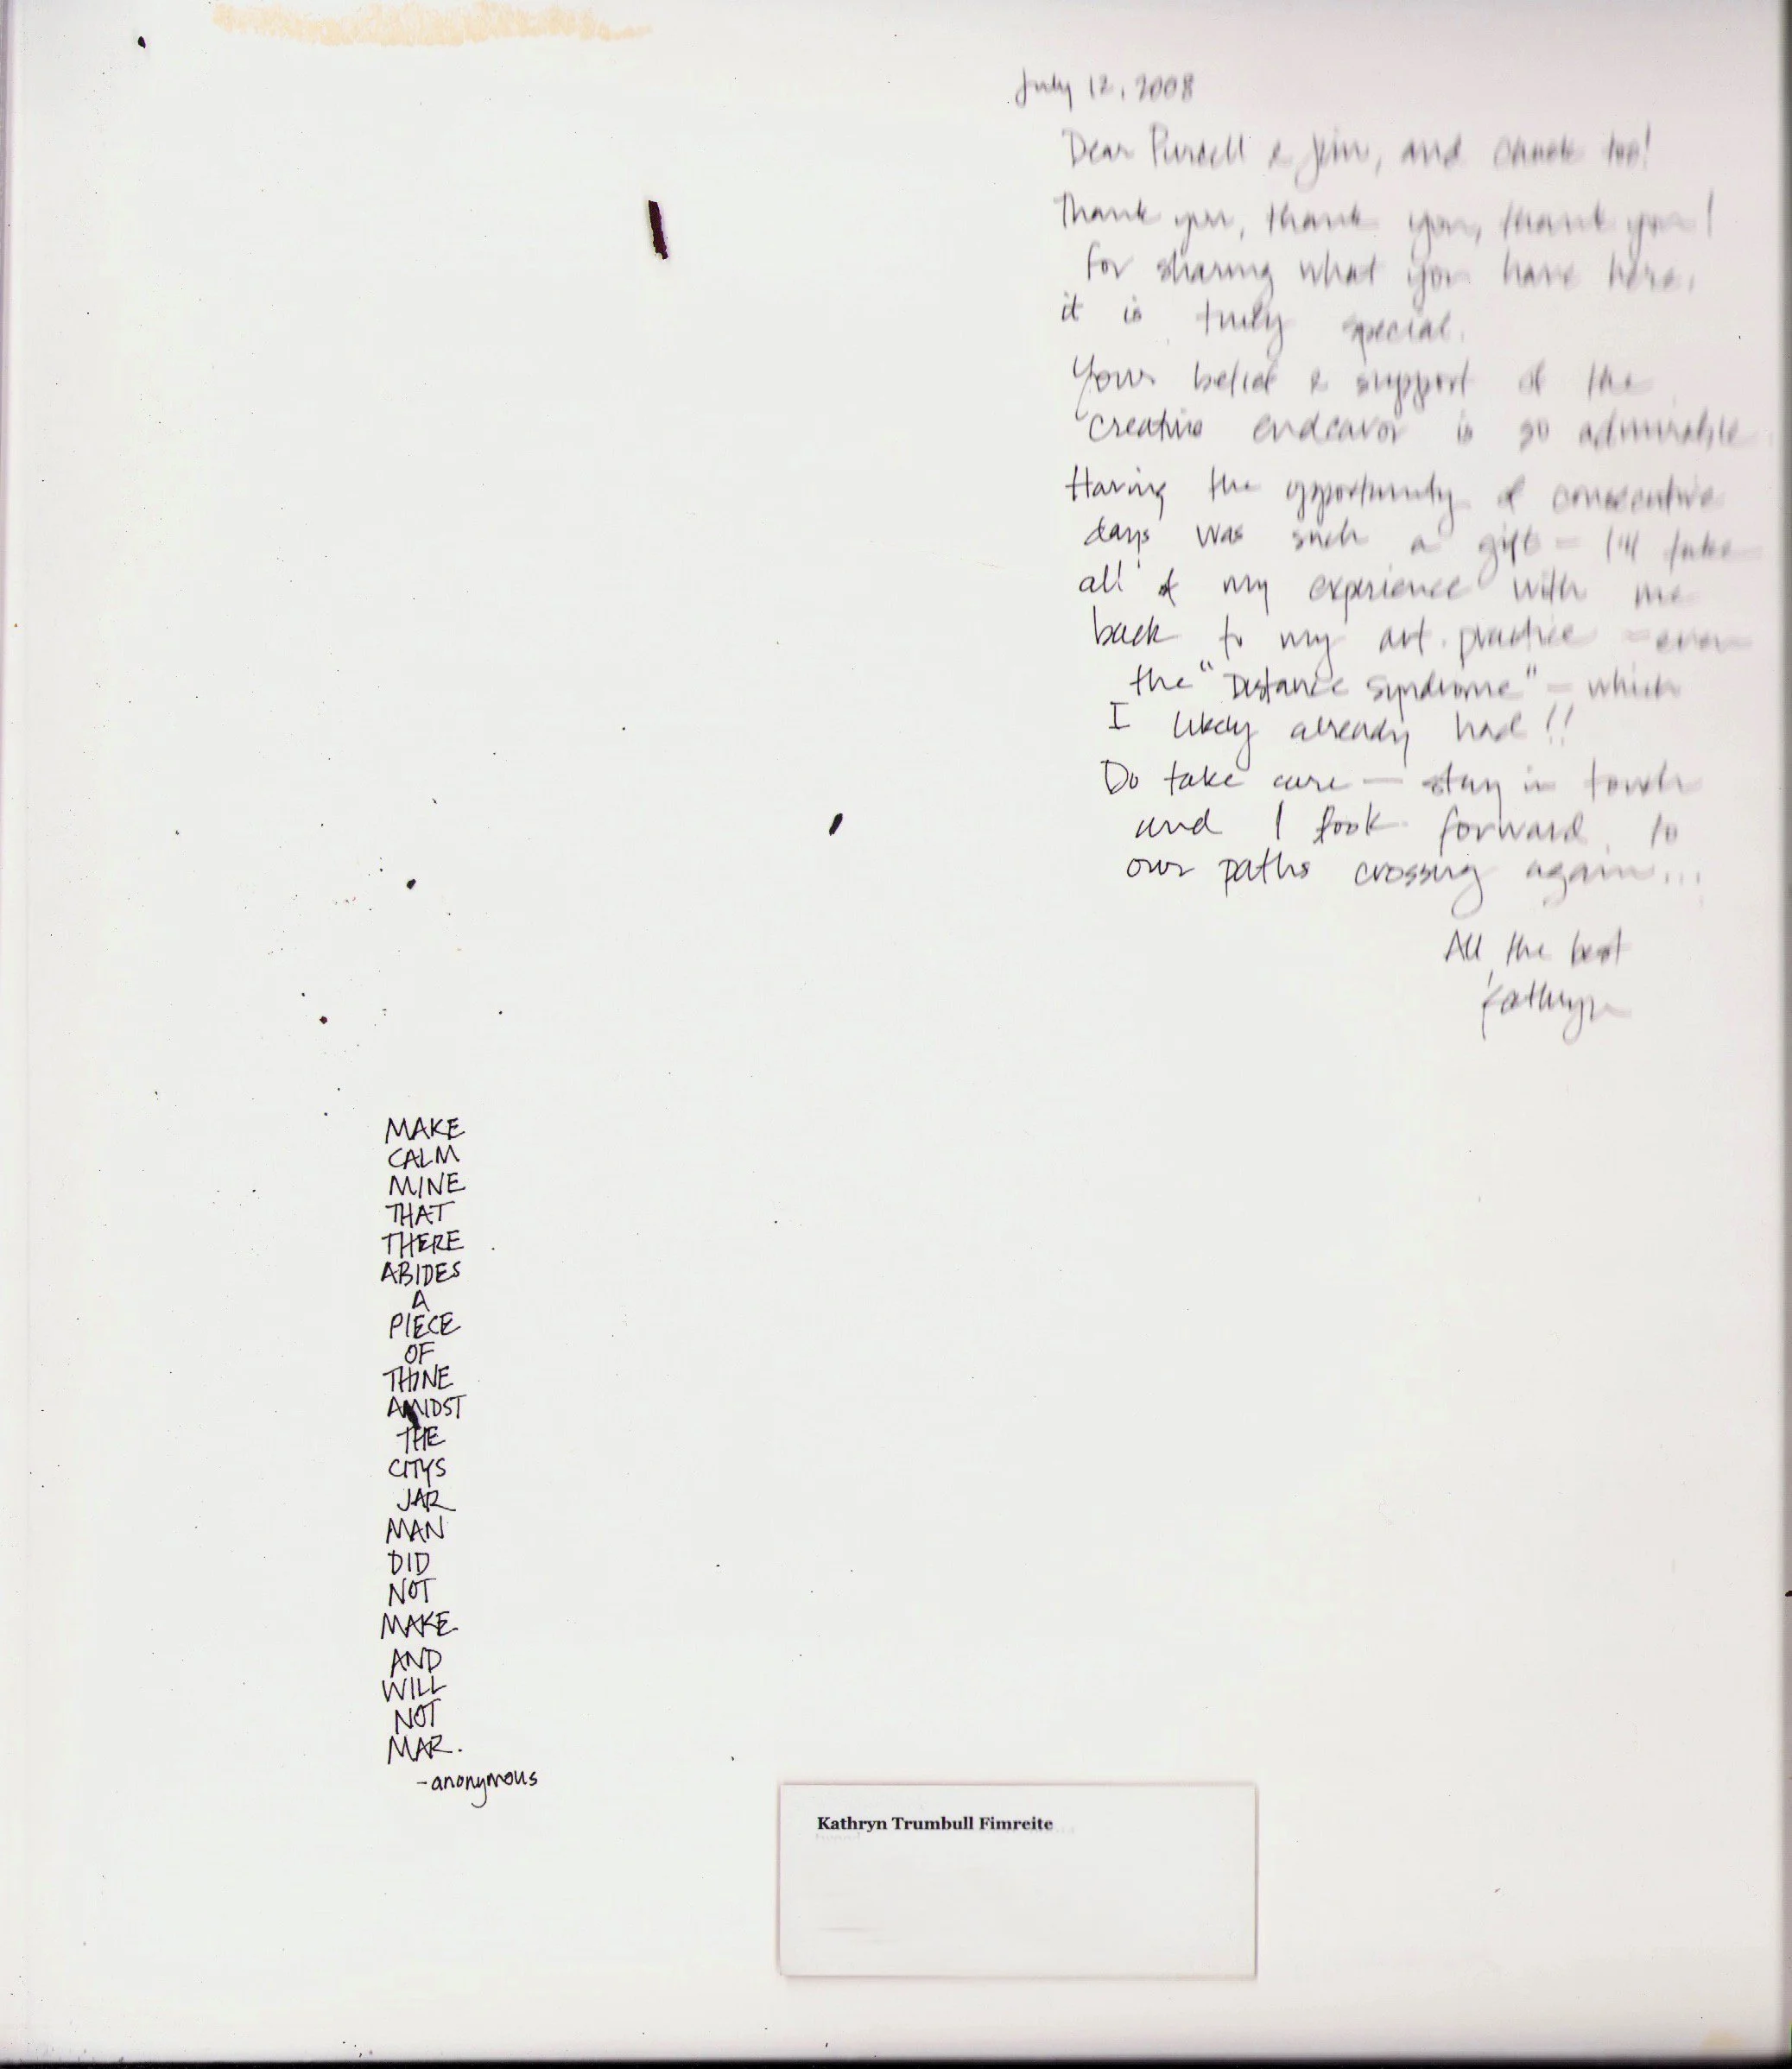 July 12, 2008
Dear Purcell & Jim, and Chuck too!
Thank you, thank you, thank you!
for sharing what you have here,
it is truly special.
Your belief & support of the
creative endeavor is so admirable.
Having the opportunity of consecutive
days was such a gift – I'll take
all of my experience with me
back to my art practice – even
the "Distance Syndrome" – which
I likely already had!!
Do take care — stay in touch
and I look forward to
our paths crossing again...
All the best
Kathryn
MAKE
CALM
MINE
THAT
THERE
ABIDES
A
PIECE
OF
THINE
AMIDST
THE
CITYS
JAR
MAN
DID
NOT
MAKE
AND
WILL
NOT
MAR.
-anonymous
Kathryn Trumbull Fimreite